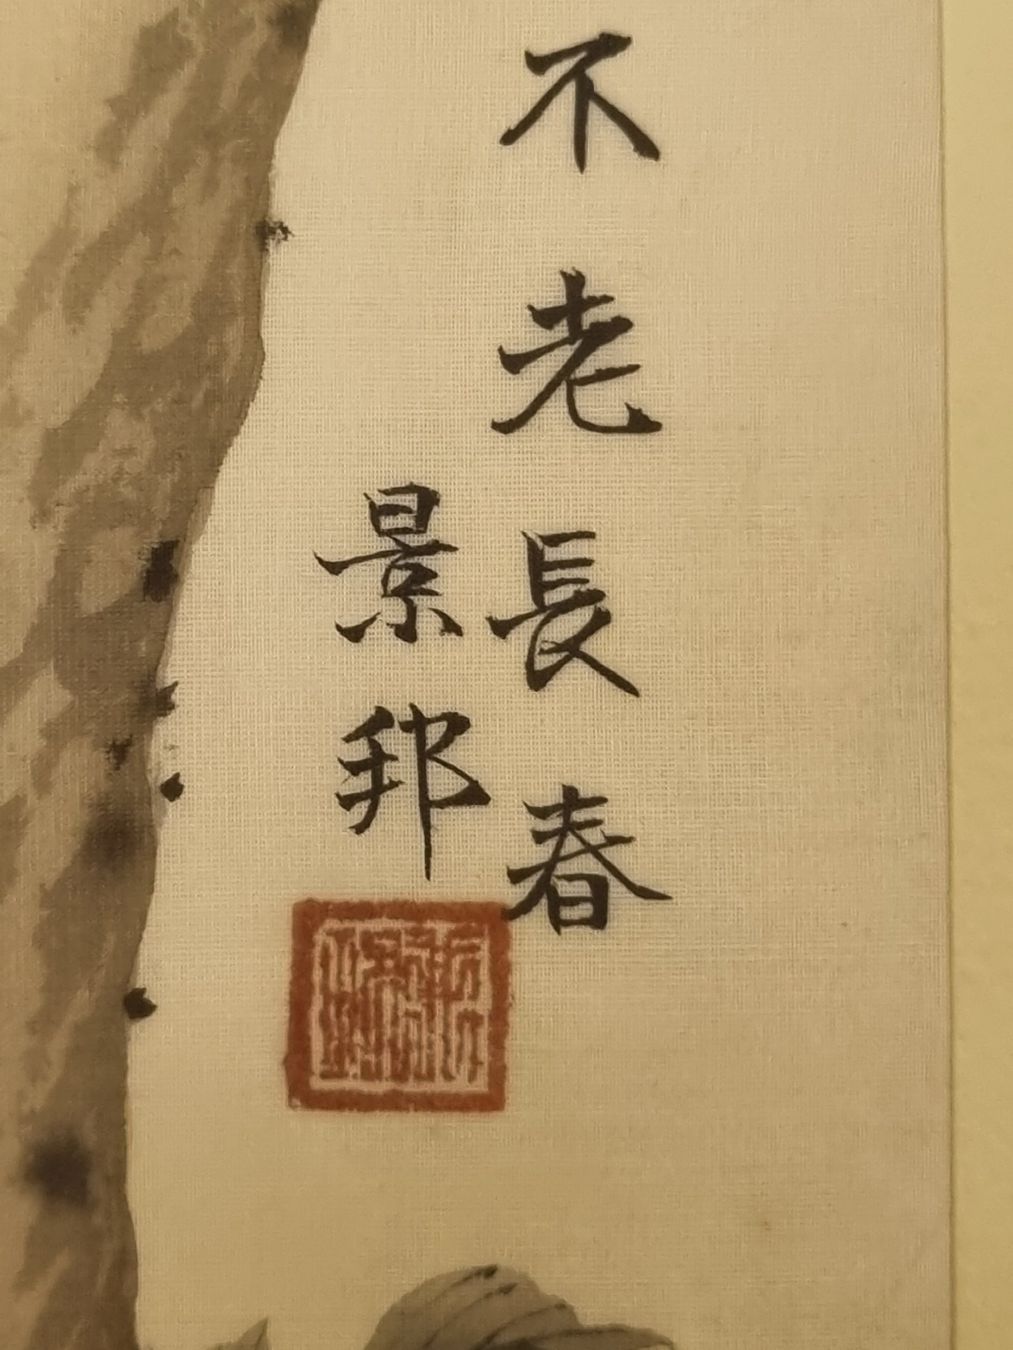 不老長春
景邦